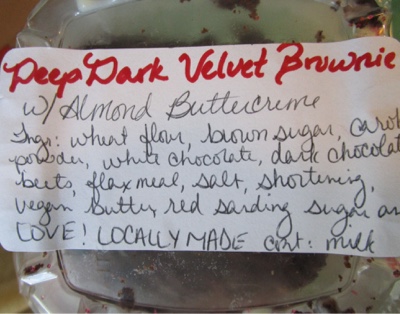 Deep Dark Velvet Brownie
w/ Almond Buttercreme
Ingr: wheat flour, brown sugar, carob
powder, white chocolate, dark chocolat
beets, flax meal, salt, shortening,
vegan butter, red sanding sugar an
LOVE! LOCALLY MADE cont: milk